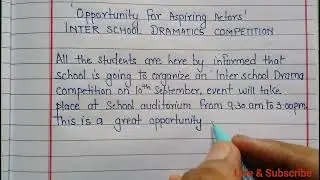 'Opportunity for Aspiring Actors'
INTER SCHOOL DRAMATICS COMPETITION
All the students are here by informed that
school is going to organize an 'Inter school Drama
competition on 10th September, event will take
place at School auditorium from 9:30 am to 3:00pm.
This is a great opportunity
Like & Subscribe